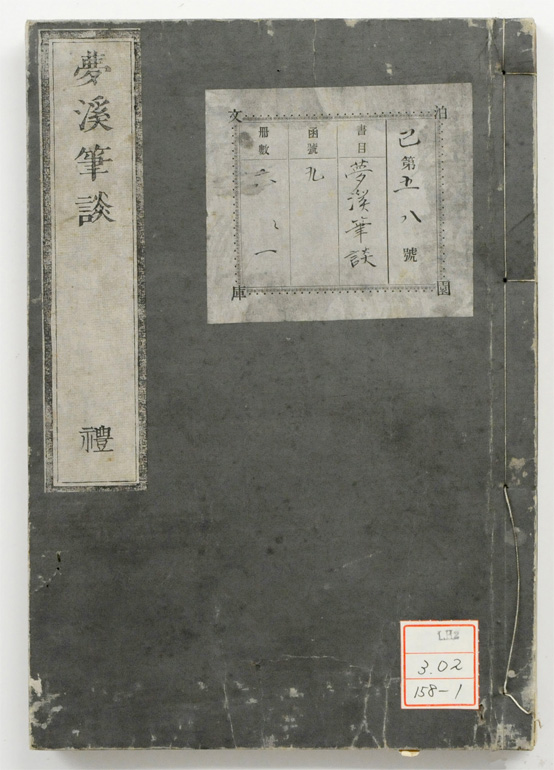 夢溪筆談 禮
泊園文庫
己第五八號
書目 夢溪筆談
函號 九
冊數 六ノ一
3.02
158-1